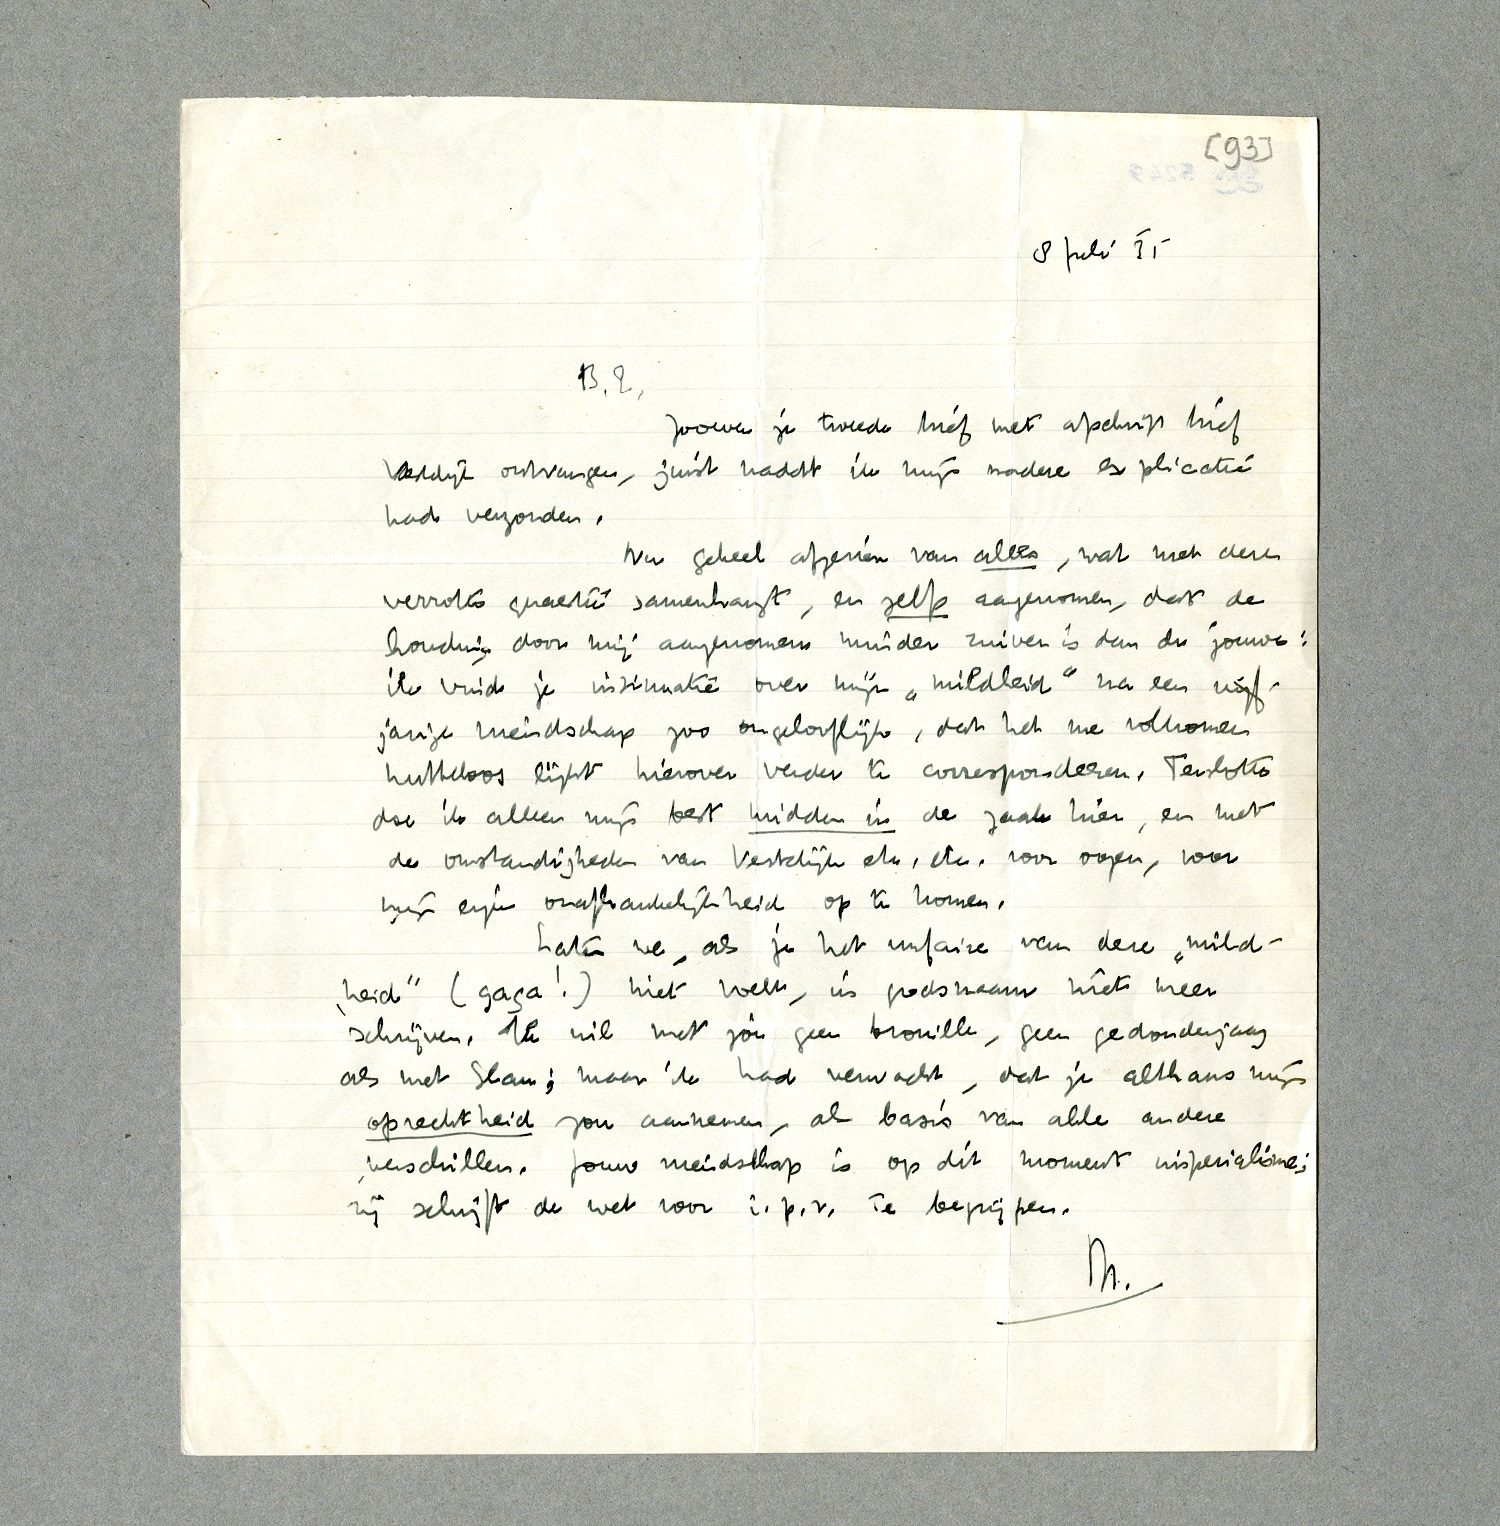 [93]
8 juli 35
B.E.,
Zooeven je tweede brief met afschrift brief
Vestdijk ontvangen, juist nadat ik mijn nadere explicatie
had verzonden.
Nu geheel afgezien van alles, wat met deze
verrotte quaestie samenhangt, en zelfs aangenomen, dat de
houding door mij aangenomen minder zuiver is dan de jouwe:
ik vind je insinuatie over mijn „mildheid" na een vijf-
jarige vriendschap zoo ongelooflijk, dat het me volkomen
nutteloos lijkt hierover verder te correspondeeren. Tenslotte
doe ik alleen mijn best midden in de zaak hier, en met
de omstandigheden van Vestdijk etc. etc. voor oogen, voor
mijn eigen onafhankelijkheid op te komen.
Laten we, als je het unfaire van deze „mild-
heid" (gaga!) niet voelt, in godsnaam niet meer
schrijven. Ik wil met jou geen brouille, geen gedonderjaag
als met Slau; maar ik had verwacht, dat je althans mijn
oprechtheid zou aannemen, als basis van alle andere
verschillen. Jouw vriendschap is op dit moment imperialisme;
zij schrijft de wet voor i.p.v. te begrijpen.
M.